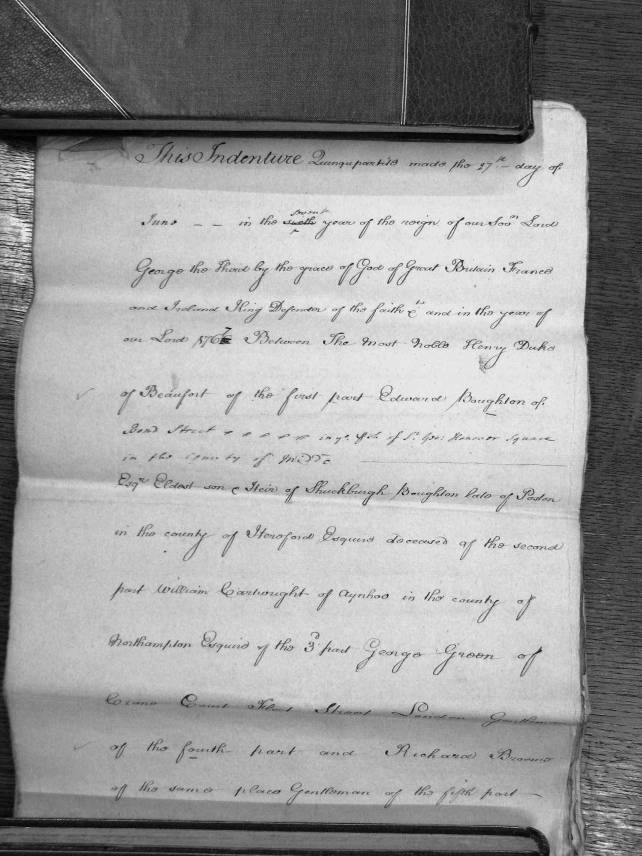 This Indenture Quinquepartite made the 27th day of
June -- in the sevent year of the reign of our Sovn Lord
George the Third by the grace of God of Great Britain France
and Ireland King Defender of the faith &ca and in the year of
our Lord 1767 Between The most Noble Henry Duke
of Beaufort of the first part Edward Boughton of
Bond Street in ye of St Geo: Hanover Square
in the County of Middx
Esqr Eldest son & Heir of Shuckburgh Boughton late of Poston
in the county of Hereford Esquire deceased of the second
part William Cartwright of Aynhoo in the county of
Northampton Esquire of the 3d part George Green of
Crane Court Fleet Street London Gentleman
of the fourth part and Richard Browne
of the same place Gentleman of the fifth part